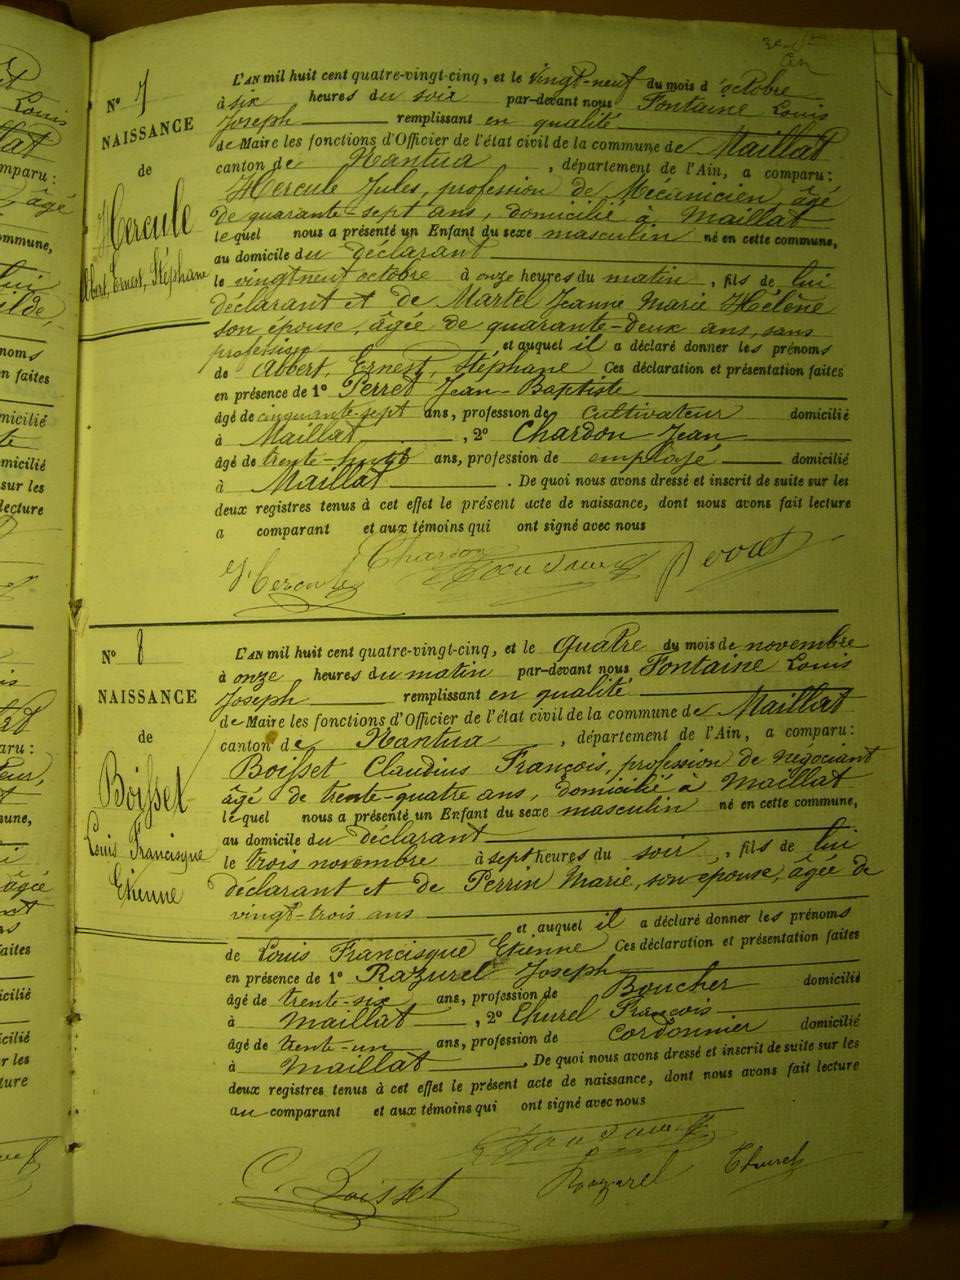 N° 7
NAISSANCE
de
Hercule
Albert, Ernest, Stéphane
L'AN mil huit cent quatre-vingt-cinq, et le vingt-neuf du mois d'octobre
à six heures du soir par-devant nous Fontaine Louis
Joseph remplissant en qualité
de Maire les fonctions d'Officier de l'état civil de la commune de Maillat
canton de Nantua, département de l'Ain, a comparu:
Hercule Jules, profession de Mécanicien, âgé
de quarante-sept ans, domicilié à Maillat
lequel nous a présenté un Enfant du sexe masculin né en cette commune,
au domicile du déclarant
le vingt neuf octobre à onze heures du matin, fils de lui
déclarant et de Martel Jeanne Marie Hélène
son épouse, âgée de quarante-deux ans, sans
profession et auquel il a déclaré donner les prénoms
de Albert, Ernest, Stéphane Ces déclaration et présentation faites
en présence de 1° Perret Jean Baptiste
âgé de cinquante-sept ans, profession de cultivateur domicilié
à Maillat, 2° Chardon Jean
âgé de trente-huit ans, profession de employé domicilié
à Maillat. De quoi nous avons dressé et inscrit de suite sur les
deux registres tenus à cet effet le présent acte de naissance, dont nous avons fait lecture
a comparant et aux témoins qui ont signé avec nous
J. Hercule Chardon
N° 8
NAISSANCE
de
Boisset
Louis Francisque
Etienne
L'AN mil huit cent quatre-vingt-cinq, et le Quatre du mois de novembre
à onze heures du matin par-devant nous Fontaine Louis
Joseph remplissant en qualité
de Maire les fonctions d'Officier de l'état civil de la commune de Maillat
canton de Nantua, département de l'Ain, a comparu:
Boisset Claudius François, profession de négociant
âgé de trente-quatre ans, domicilié à Maillat
lequel nous a présenté un Enfant du sexe masculin né en cette commune,
au domicile du déclarant
le trois novembre à sept heures du soir, fils de lui
déclarant et de Perrin Marie, son épouse, âgée de
vingt-trois ans
et auquel il a déclaré donner les prénoms
de Louis Francisque Etienne Ces déclaration et présentation faites
en présence de 1° Razurel Joseph
âgé de trente-six ans, profession de Boucher domicilié
à Maillat, 2° Thurel François
âgé de trente-un ans, profession de cordonnier domicilié
à Maillat. De quoi nous avons dressé et inscrit de suite sur les
deux registres tenus à cet effet le présent acte de naissance, dont nous avons fait lecture
au comparant et aux témoins qui ont signé avec nous
C. Boisset Razurel Thurel